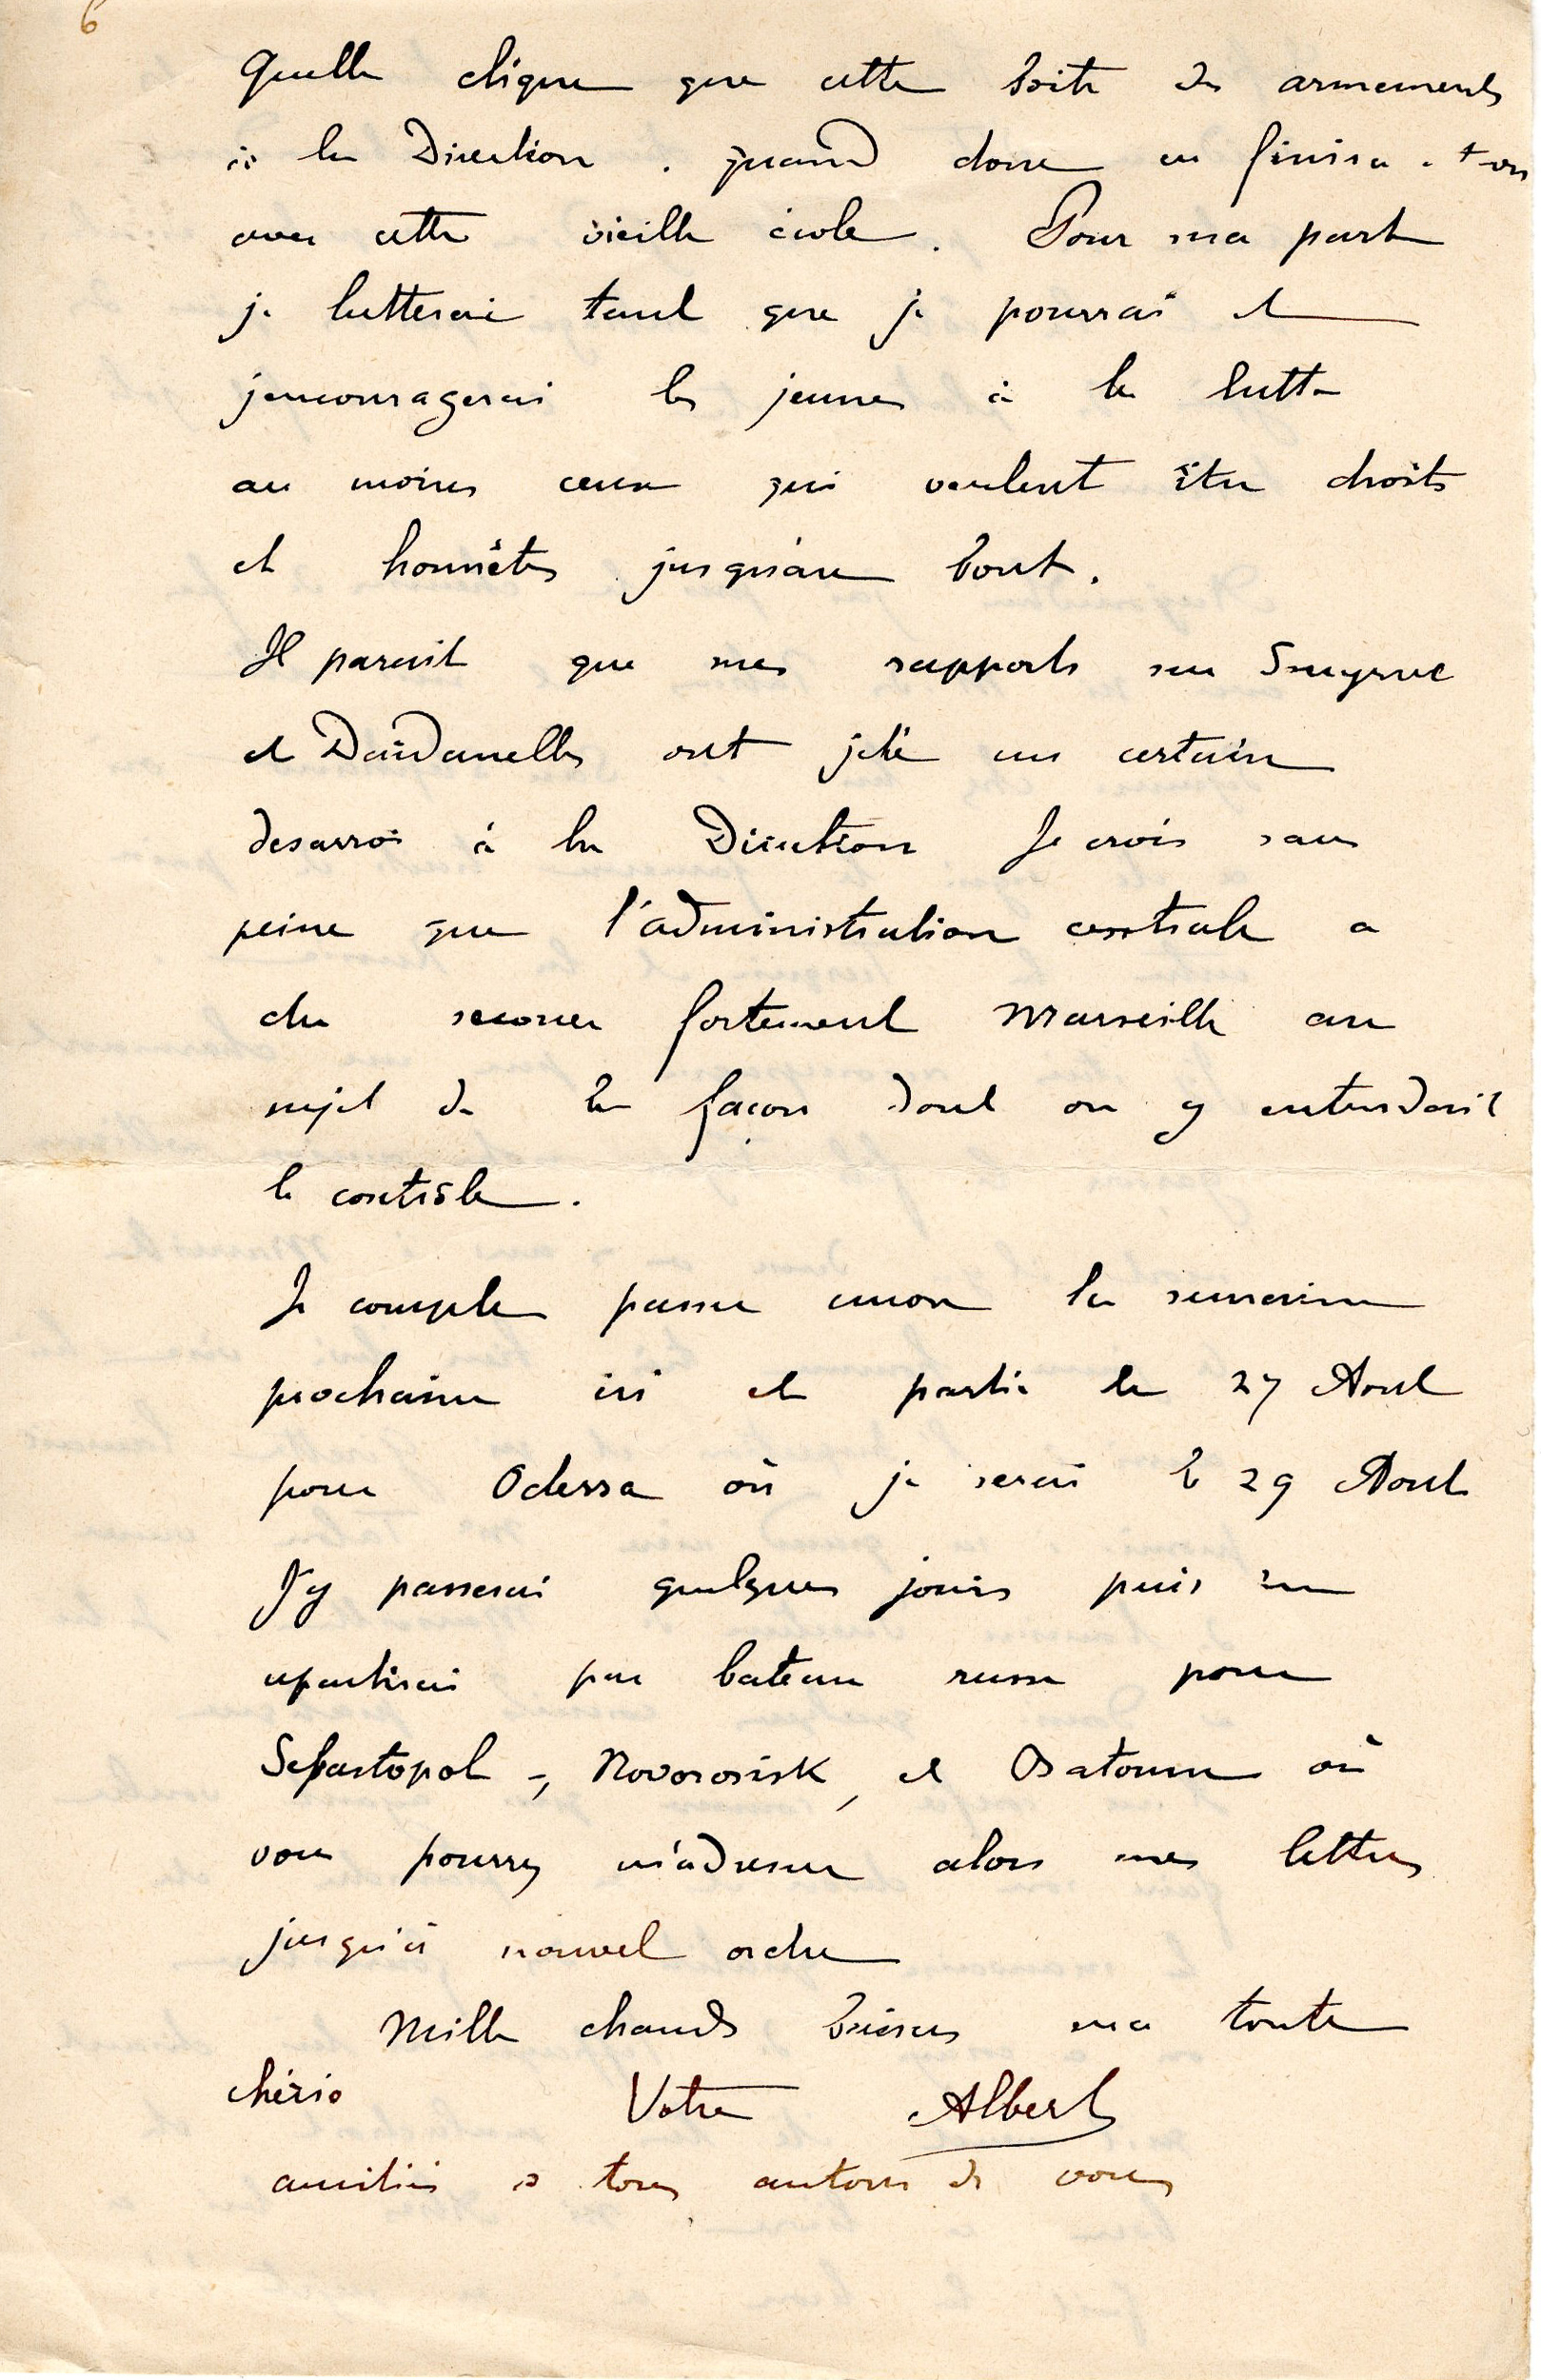 6
Quelle clique que cette boite des armements
à la Direction. quand donc en finira-t-on
avec cette vieille école. Pour ma part
je lutterai tant que je pourrai et
j'encouragerai les jeunes à la lutte
au moins ceux qui veulent être droits
et honnêtes jusqu'au bout.
Il parait que mes rapports sur Smyrne
et Dardanelles ont jeté un certain
desarroi à la Direction Je crois sans
peine que l'administration centrale a
du secouer fortement Marseille au
sujet de la façon dont on y entendait
le contrôle.
Je compte passer encore la semaine
prochaine ici et partir le 27 Aout
pour Odessa où je serai le 29 Aout
J'y passerai quelques jours puis en
repartirai par bateau russe pour
Sebastopol -, Novorosisk, et Batoum où
vous pourrez m'adresser alors mes lettres
jusqu'à nouvel ordre
Mille chauds baisers ma toute
chérie Votre Albert
amitiés à tous autour de vous